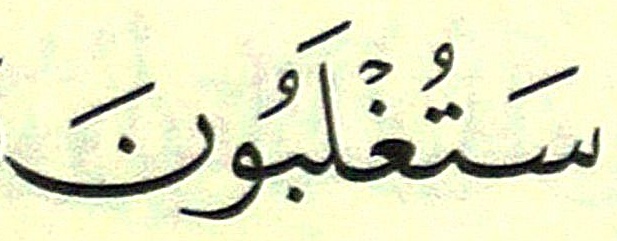 سَتُغْلَبُونَ